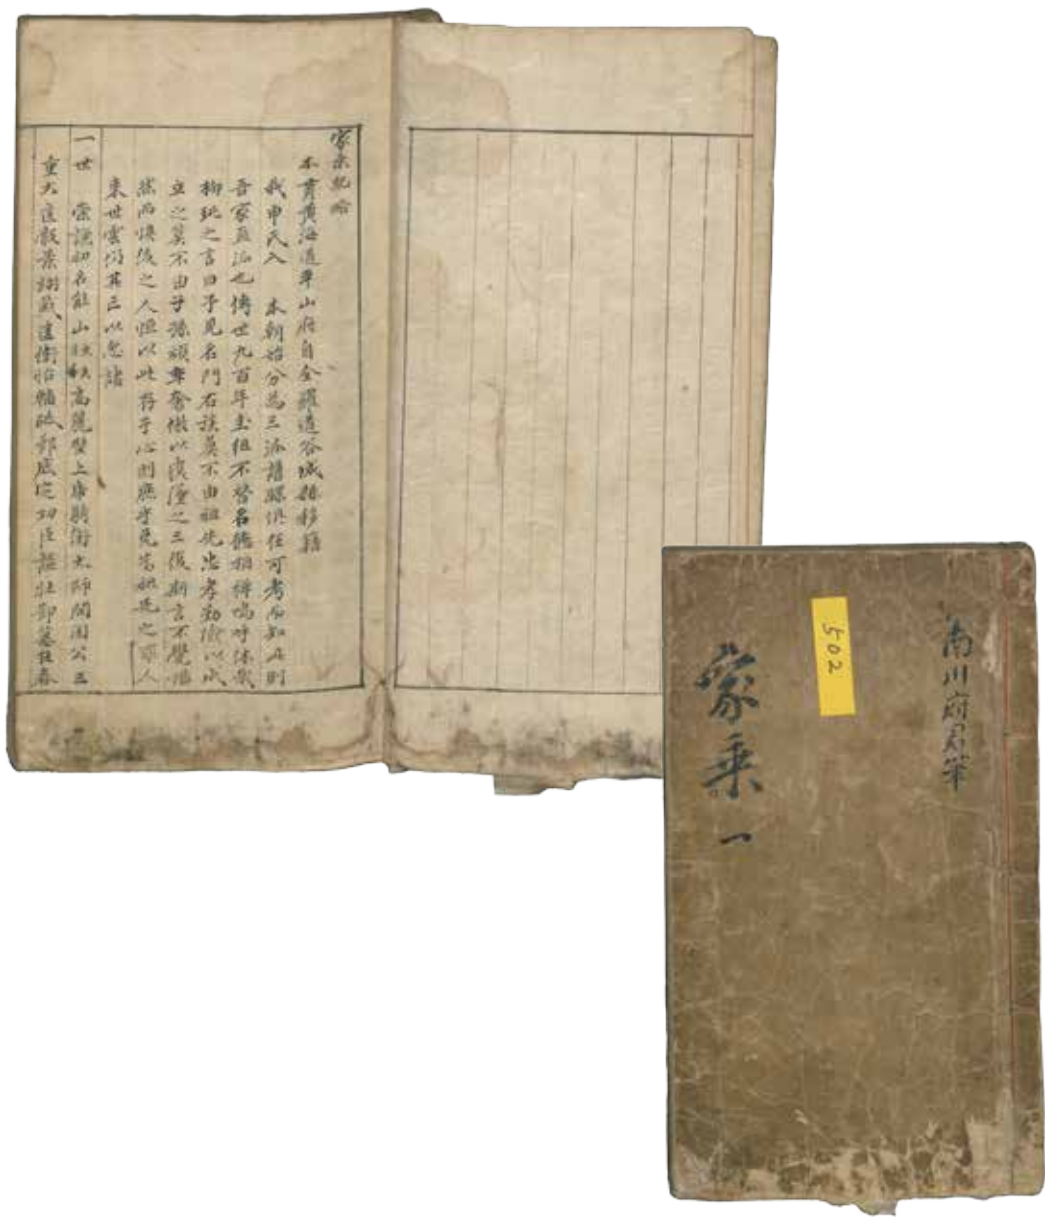 家乘紀略
本貫黃海道平山府自全羅道谷城縣移籍
我申氏入 本朝始分爲三派譜牒俱在可考而知此則
吾家直派也傳世九百年圭組不替名德相禪嗚呼休哉
柳玭之言曰予見名門右族莫不由祖先忠孝勤儉以成
立之莫不由子孫頑率奢傲以覆墜之三復斯言不覺惕
然而懼後之人恒以此存于心則庶乎免爲祖先之罪人
來世雲仍其三以念諸
一世 崇謙初名能山 高麗壁上虎騎衛大師開國公三
重大匡 功臣諡壯節墓在春
家乘 一
502
南川府君筆